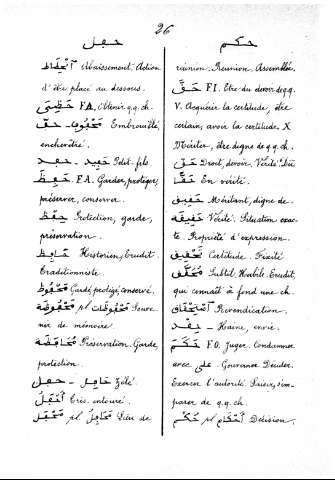 26
حفل
اِنْحِطَاط Abaissement. Action
d'être placé au dessous.
حَظِيَ F.A. Obtenir q.q.ch.
Embrouillé,
enchevêtré.
حَفِيد - حفد Petit-fils.
حَفِظَ F.A. Garder, protéger,
préserver, conserver.
حِفْظ Protection, garde,
préservation.
حَافِظ Historien, Erudit.
Traditionniste.
مَحْفُوظ Gardé, protégé, conservé.
مَحْفُوظَة pl مَحْفُوظَات Souve
nir de mémoire.
مُحَافَظَة Préservation. Garde,
protection.
حَافِل - حفل Zélé.
Très entouré.
مَحْفِل pl مَحَافِل Lieu de
حكم
réunion. Réunion. Assemblée.
حَقَّ F I. Etre du devoir de q.q.
V. Acquérir la certitude, être
certain, avoir la certitude. X
Mériter, être digne de q.q.ch.
حَقّ Droit, devoir. Vérité.
حَقًّا En vérité.
حَقِيق Méritant, digne de.
حَقِيقَة Vérité. Situation exac-
te. Propriété d'expression.
تَحْقِيق Certitude. Fixité
Subtil. Habile. Erudit,
qui connaît à fond une ch.
اِسْتِحْقَاق Revendication.
حِقْد - Haine, envie.
حَكَمَ F.O. Juger. Condamner
avec على. Gouverner. Décider.
Exercer l'autorité. Saisir, s'em-
parer de q.q.ch.
حُكْم pl أَحْكَام Décision,